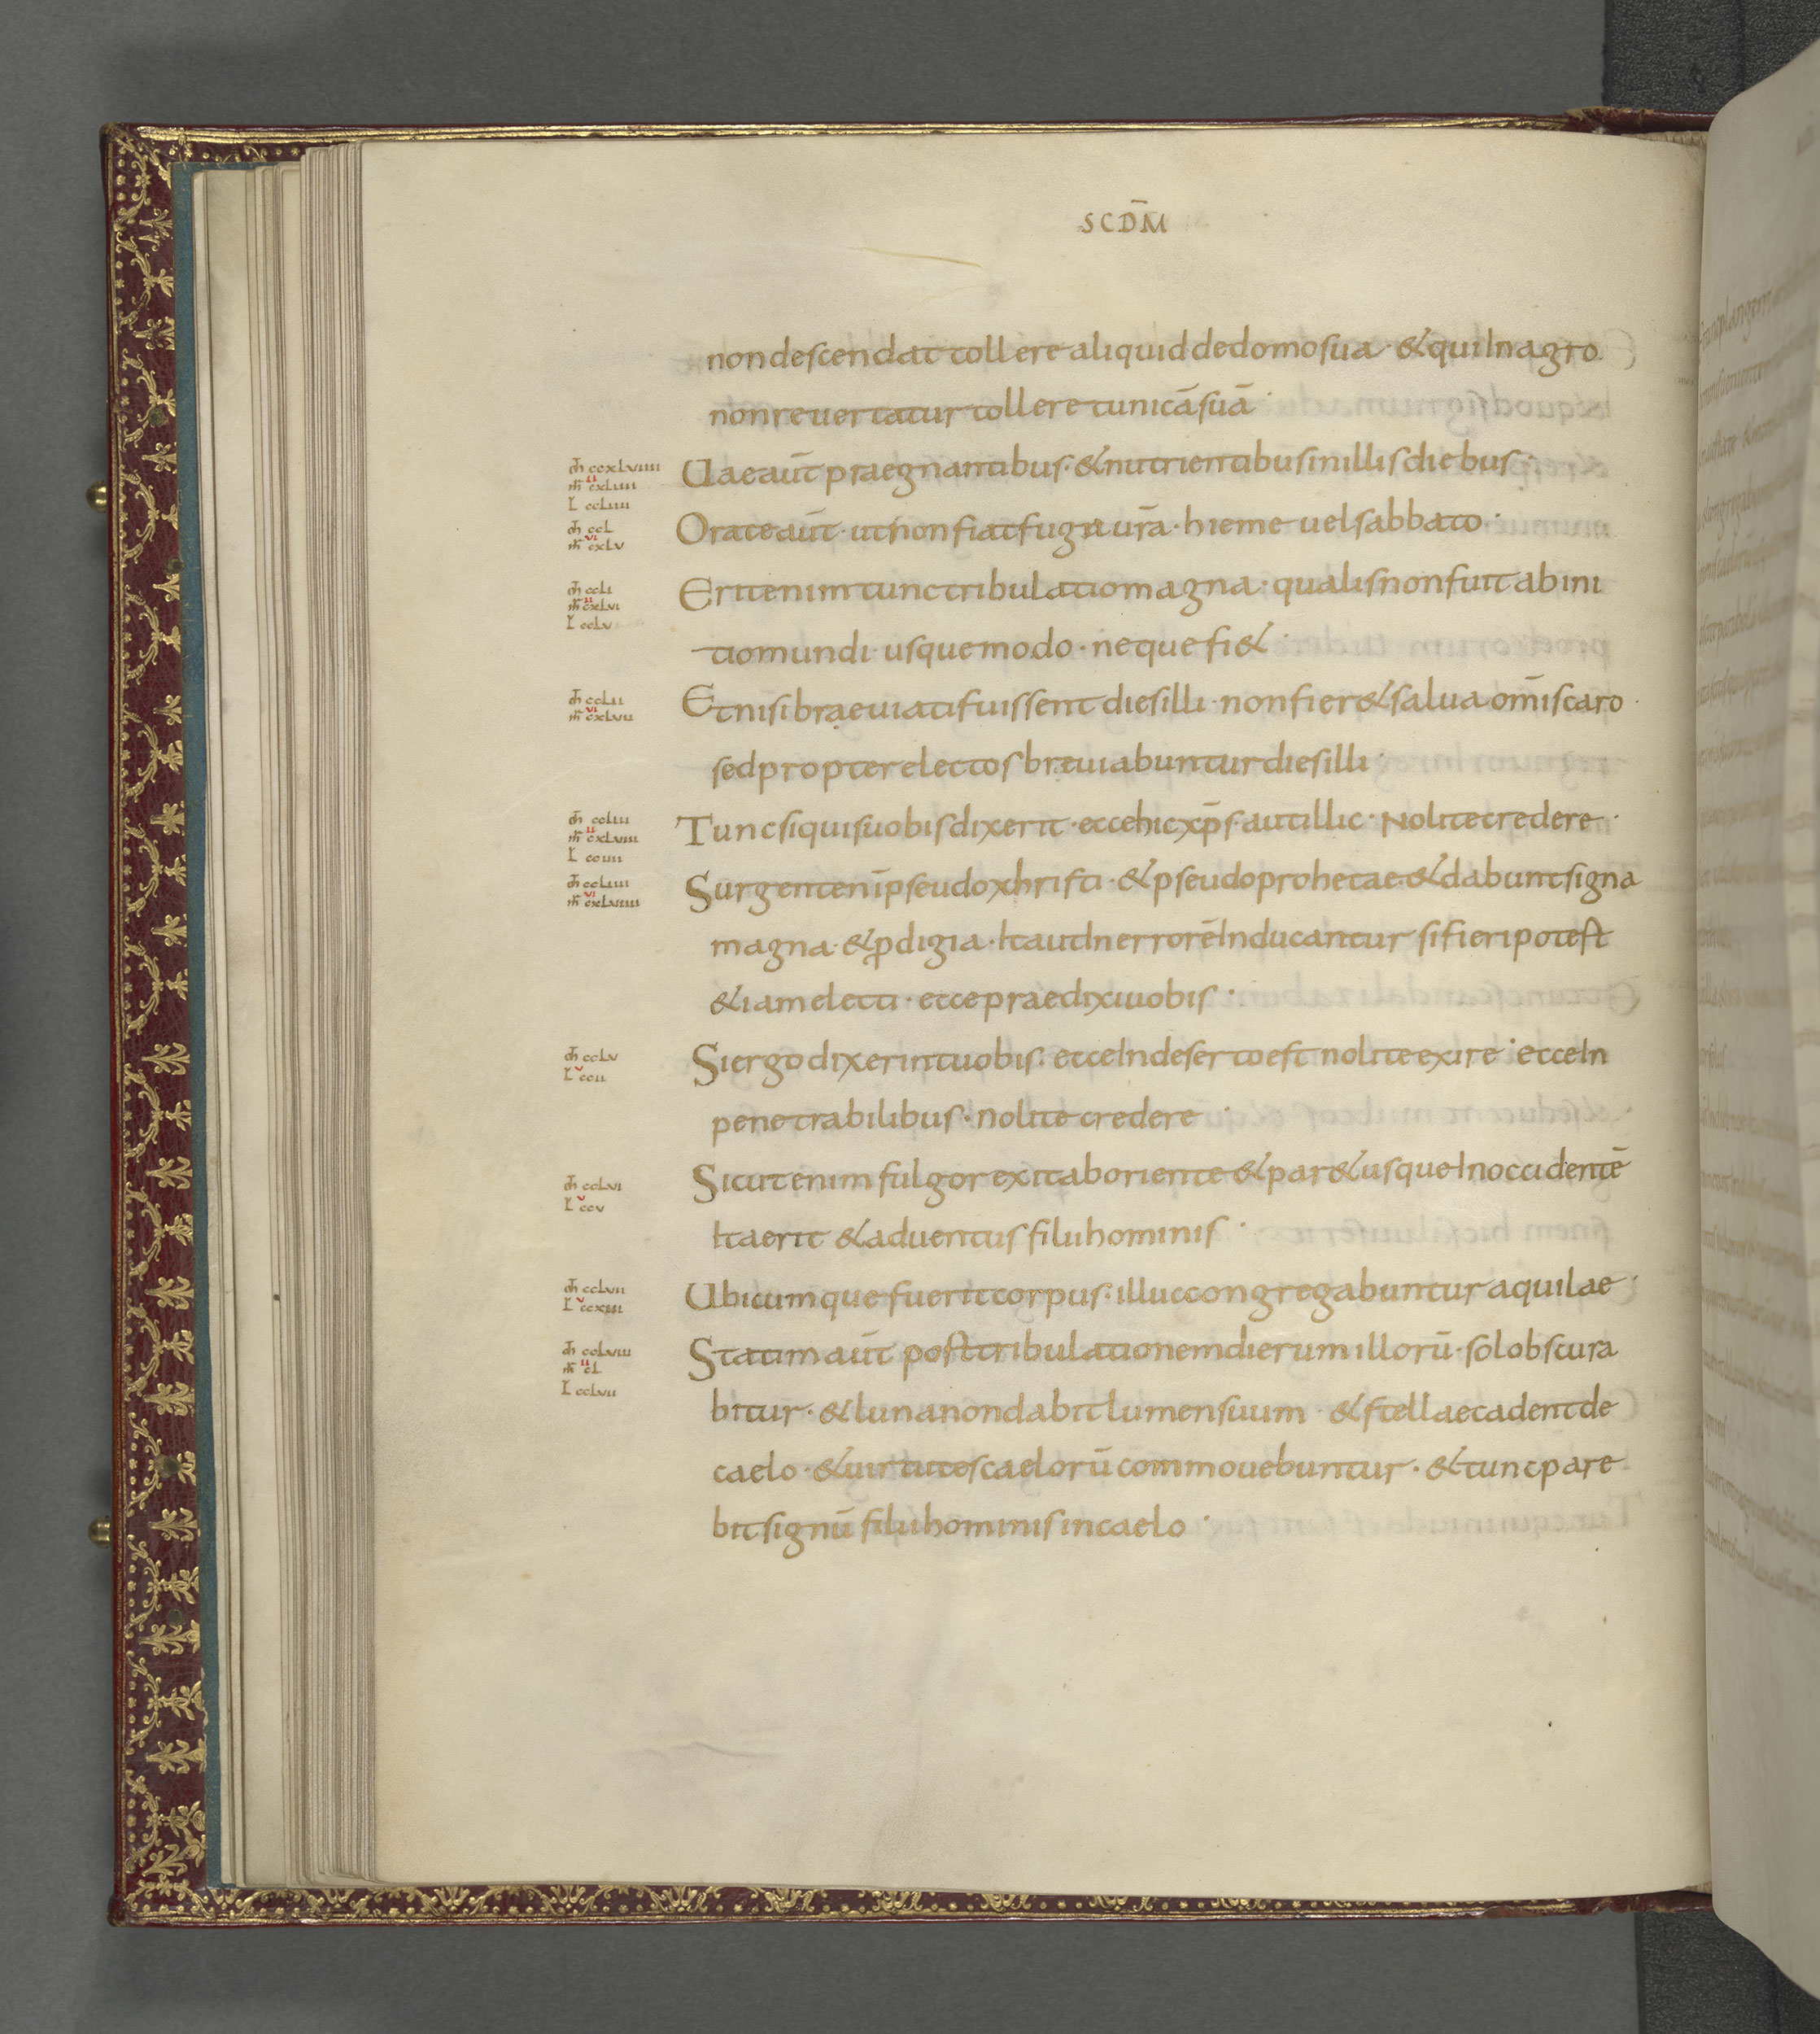 SCD̄M
non descendat tollere aliquid de domo sua · & qui In agro
non reuertatur tollere tunicā suā ·
m̄ ccxlviiii
m̄r cxliiii
ii
L ccliiii
Uae aūt praegnantibus · & nutrientibus in illis diebus ·
m̄ ccl
vi
m̄r cxlv
Orate aūt · ut non fiat fuga ūra · hieme uel sabbato ·
m̄ ccli
ii
m̄r cxlvi
L cclv
Erit enim tunc tribulatio magna · qualis non fuit ab ini
tio mundi usque modo · neque fi& ·
m̄ cclii
vi
m̄r cxlvii
Et nisi braeuiati fuissent dies illi · non fier& salua om̄is caro ·
sed propter electos breuiabuntur dies illi ·
m̄ ccliii
ii
m̄r cxlviii
L cciiii
Tunc si quis uobis dixerit · ecce hic xp̄s · aut illic · Nolite credere ·
m̄ ccliiii
vi
m̄r cxlviiii
Surgent enī pseudoxhristi · & pseudoprohetae · & dabunt signa
magna · & ꝓdigia · Ita ut In errorē Inducantur si fieri potest
&iam electi · ecce praedixi uobis ·
m̄ cclv
v
L ccii
Si ergo dixerint uobis · ecce In deserto est nolite exire · ecce In
penetrabilibus · nolite credere ·
m̄ cclvi
v
L ccv
Sicut enim fulgor exit ab oriente & par& usque In occidentē
Ita erit & aduentus filii hominis ·
m̄ cclvii
v
L ccxiii
Ubicumque fuerit corpus · illuc congregabuntur aquilae ·
m̄ cclviii
ii
m̄r cl
L cclvii
Statim aūt post tribulationem dierum illorū · sol obscura
bitur · & luna non dabit lumen suum · & stellae cadent de
caelo · & uirtutes caelorū commouebuntur · & tunc pare
bit signū filii hominis in caelo ·